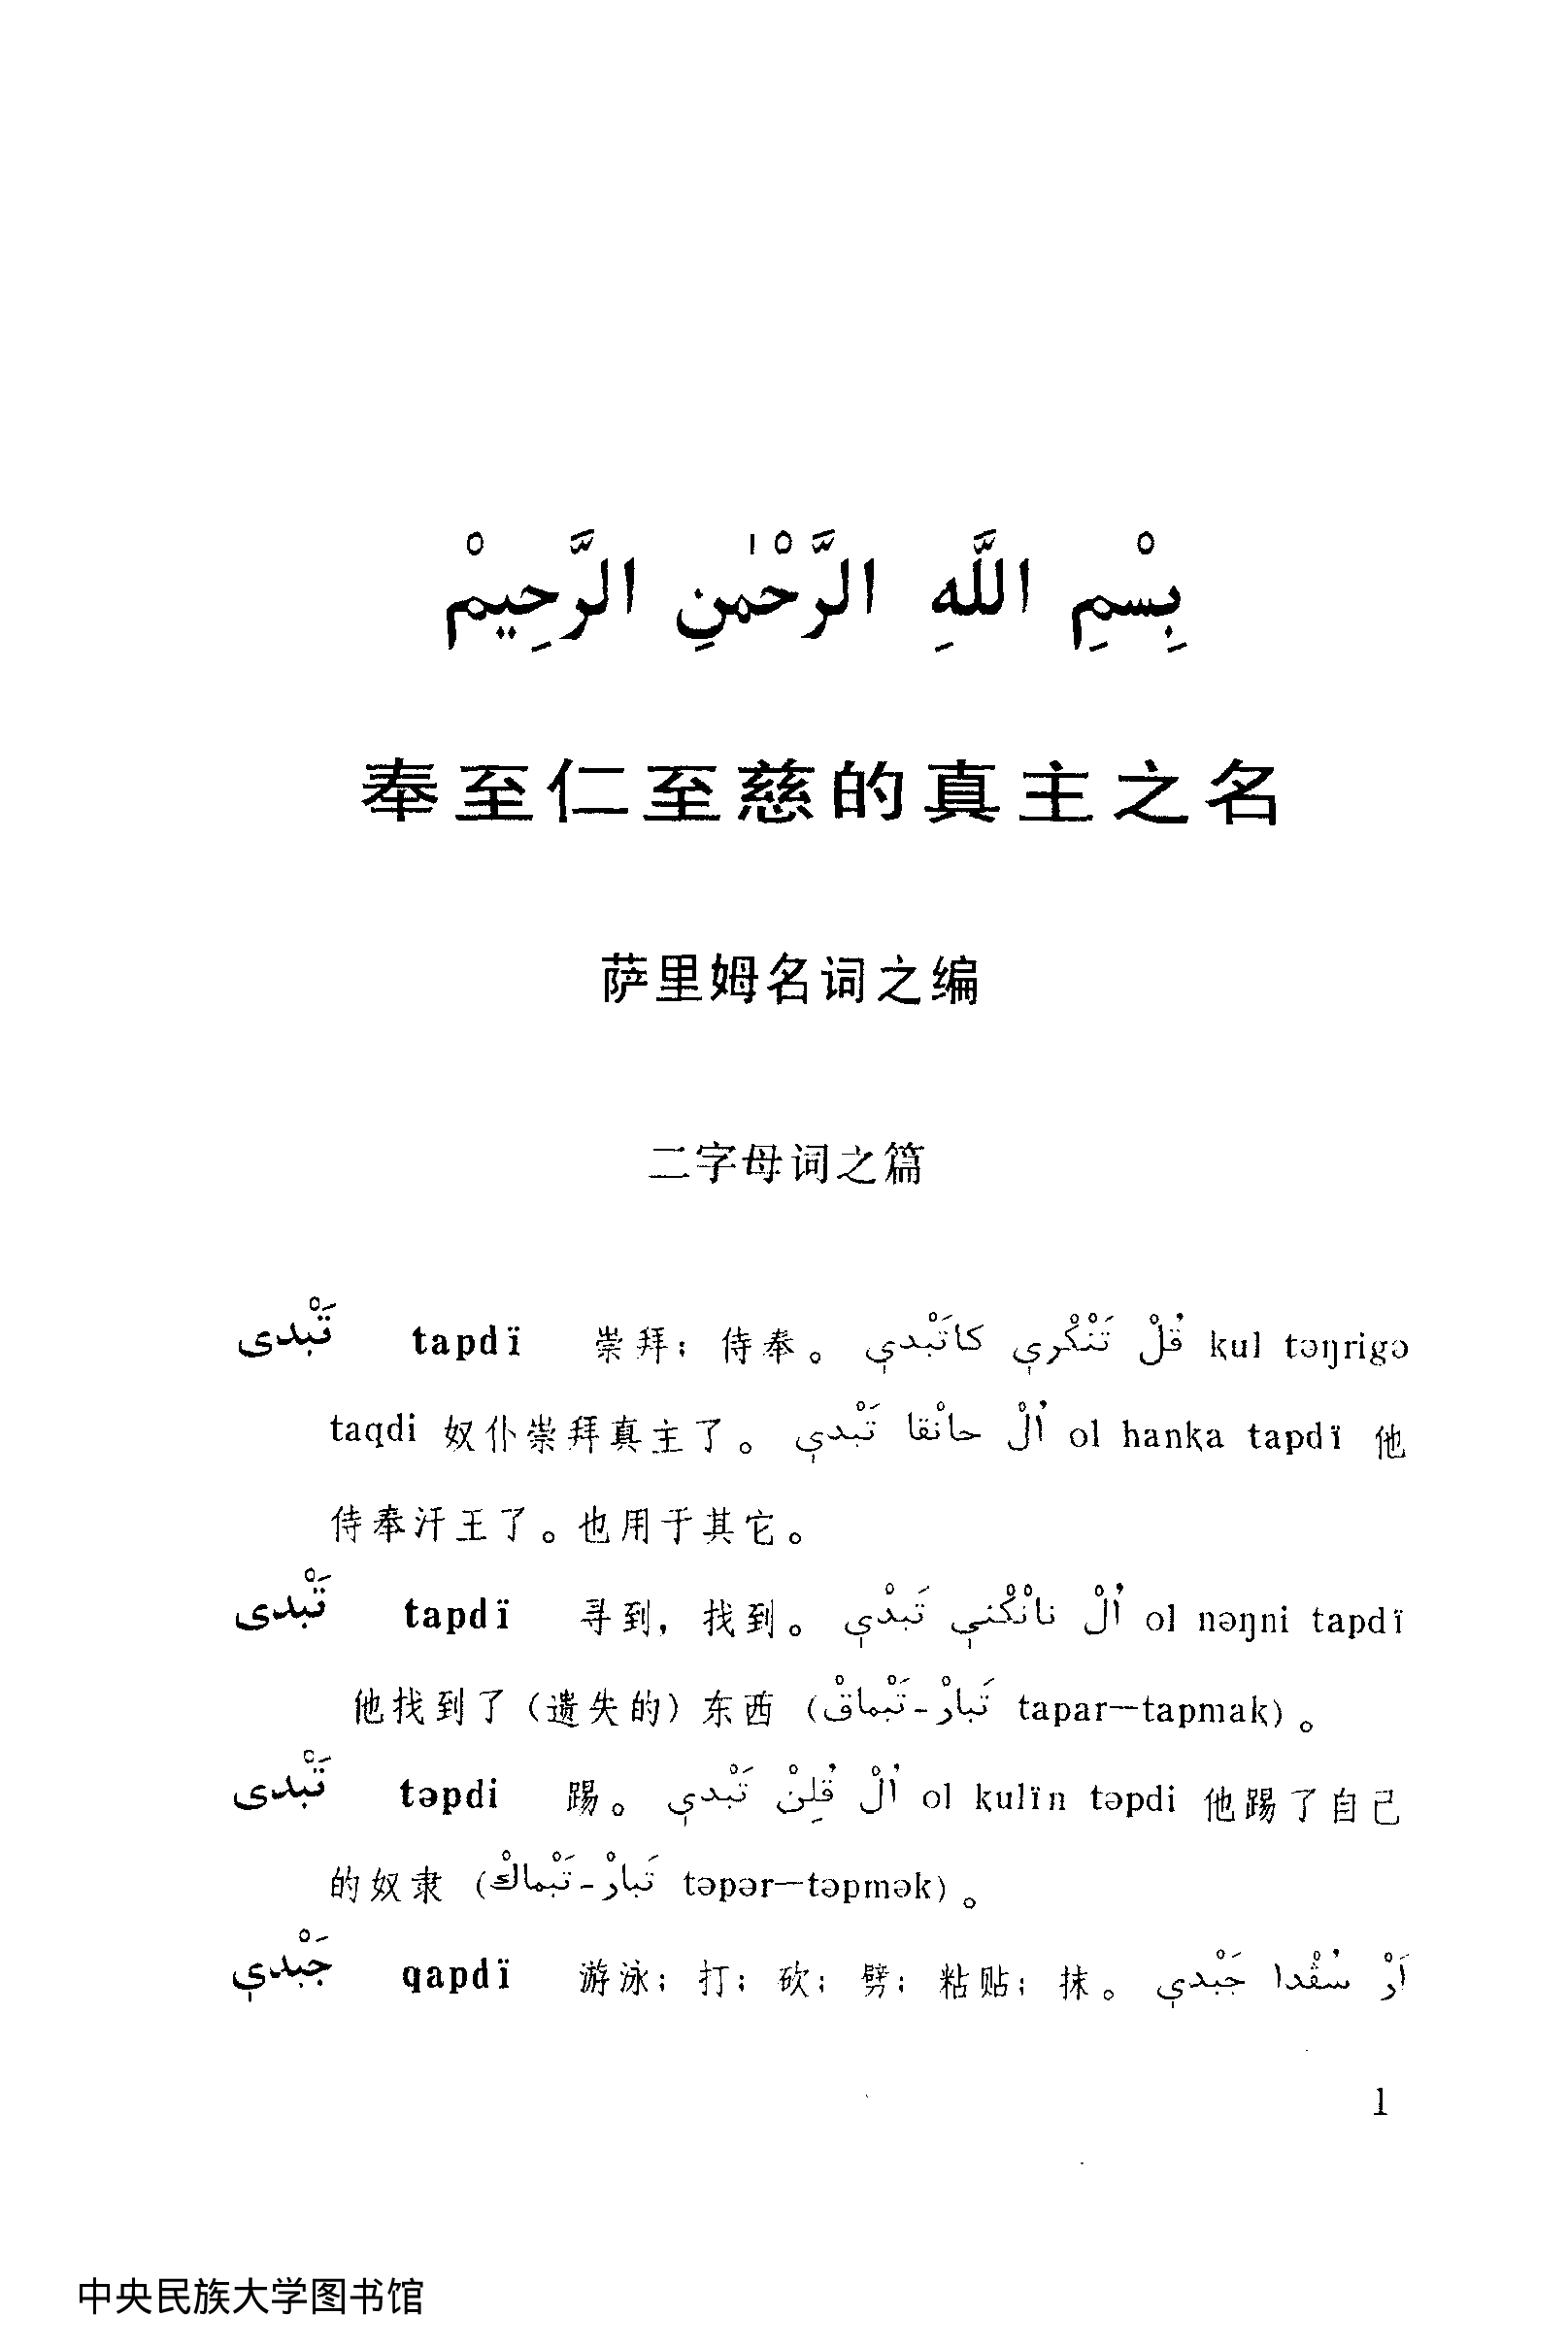 بِسْمِ اللَّهِ الرَّحْمٰنِ الرَّحِيمْ
奉至仁至慈的真主之名
萨里姆名词之编
二字母词之篇
تَبْدى tapdï 崇拜；侍奉。 قُلْ تَنْكْرىٖ كاتَبْدىٖ kul təŋrigə
taqdi 奴仆崇拜真主了。 اُلْ حانْقا تَبْدىٖ ol hanka tapdï 他
侍奉汗王了。也用于其它。
تَبْدى tapdï 寻到，找到。 اُلْ نانْكْنىٖ تَبدْىٖ ol nəŋni tapdï
他找到了（遗失的）东西（تَبارْ-تَبْماقْ tapar—tapmak）。
تَبْدى təpdi 踢。 اُلْ قُلِنْ تَبْدىٖ ol kulïn təpdi 他踢了自己
的奴隶（تَبارْ-تَبْماكْ təpər—təpmək）。
جَبْدىٖ qapdï 游泳；打；砍；劈；粘贴；抹。 اَرْ سُقْدا جَبْدىٖ
1
中央民族大学图书馆